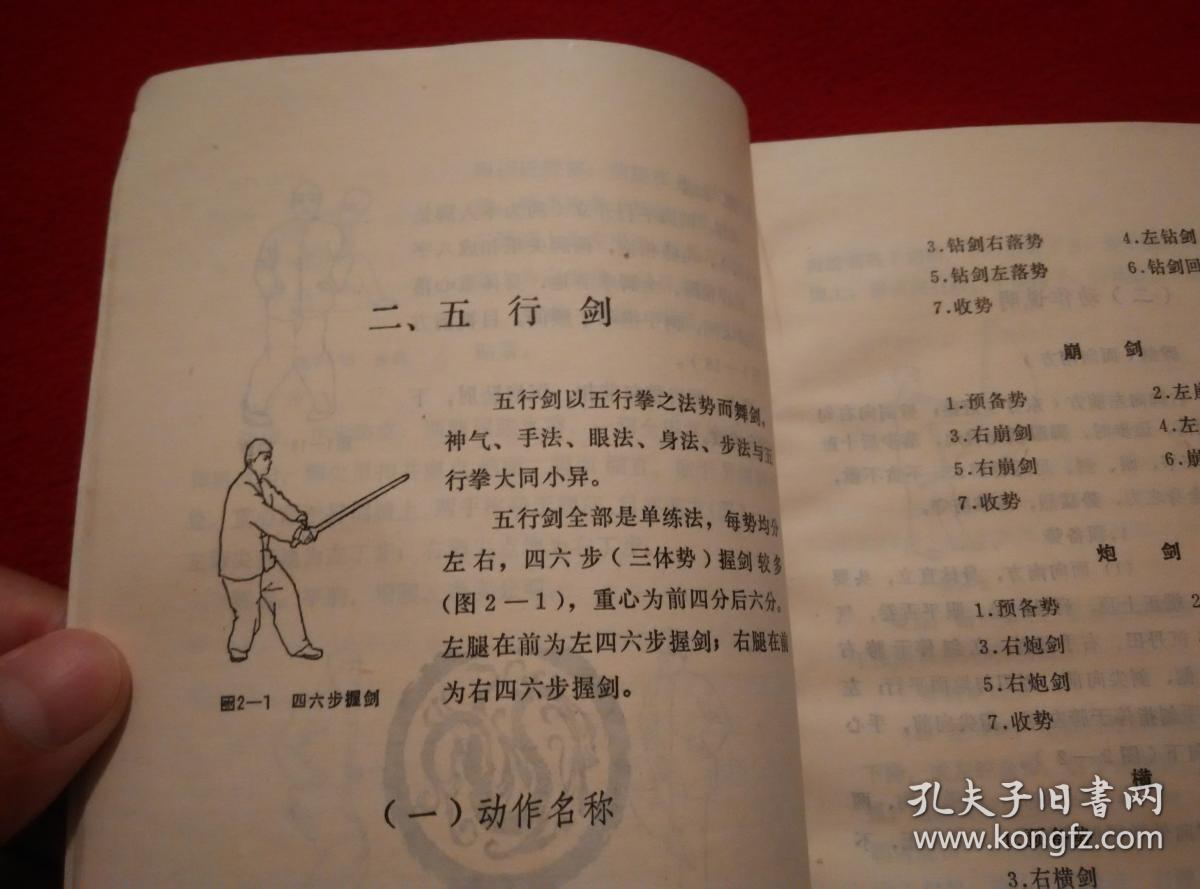 二、五行剑
五行剑以五行拳之法势而舞剑，
神气、手法、眼法、身法、步法与五
行拳大同小异。
五行剑全部是单练法，每势均分
左右，四六步（三体势）握剑较多
（图2—1），重心为前四分后六分。
左腿在前为左四六步握剑；右腿在前
为右四六步握剑。
图2—1 四六步握剑
（一）动作名称
3.钻剑右落势 4.左钻剑
5.钻剑左落势 6.钻剑回
7.收势
崩剑
1.预备势 2.左崩
3.右崩剑 4.左
5.右崩剑 6.崩
7.收势
炮剑
1.预备势 2
3.右炮剑
5.右炮剑
7.收势
横
3.右横剑
孔夫子旧书网
www.kongfz.com